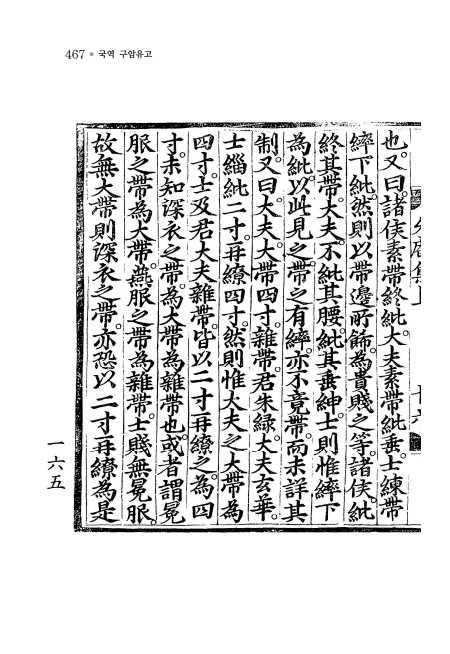 467 ● 국역 구암유고
也。又曰諸侯素帶終紕。大夫素帶紕垂。士練帶
繂下紕。然則以帶邊所飾。爲貴賤之等。諸侯。紕
終其帶。大夫。不紕其腰。紕其垂紳。士則惟繂下
爲紕。以此見之。帶之有繂。亦不竟帶。而未詳其
制。又曰。大夫。大帶四寸。雜帶。君朱綠。大夫玄華。
士緇紕二寸。再繚四寸。然則惟大夫之大帶爲
四寸。士及君大夫雜帶。皆以二寸再繚之。爲四
寸。未知深衣之帶。爲大帶爲雜帶也。或者謂冕
服之帶爲大帶。燕服之帶爲雜帶。士賤無冕服。
故無大帶則深衣之帶。亦恐以二寸再繚爲是
一六五